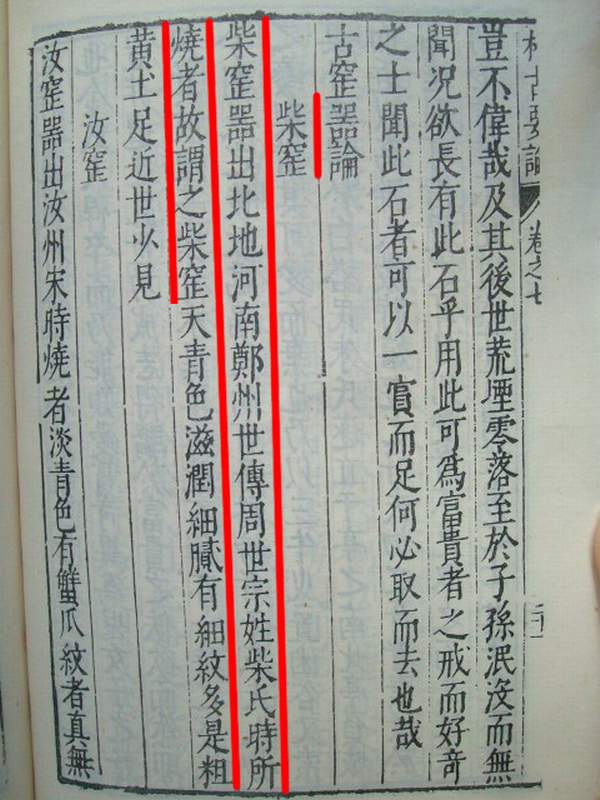 格古要論 卷之七
豈不偉哉及其後世荒堙零落至於子孫泯沒而無
聞況欲長有此石乎用此可為富貴者之戒而好奇
之士聞此石者可以一賞而足何必取而去也哉
古窑器論
柴窑
柴窑器出北地河南鄭州世傳周世宗姓柴氏時所
燒者故謂之柴窑天青色滋潤細膩有細紋多是粗
黃土足近世少見
汝窑
汝窑器出汝州宋時燒者淡青色有蟹爪紋者真無